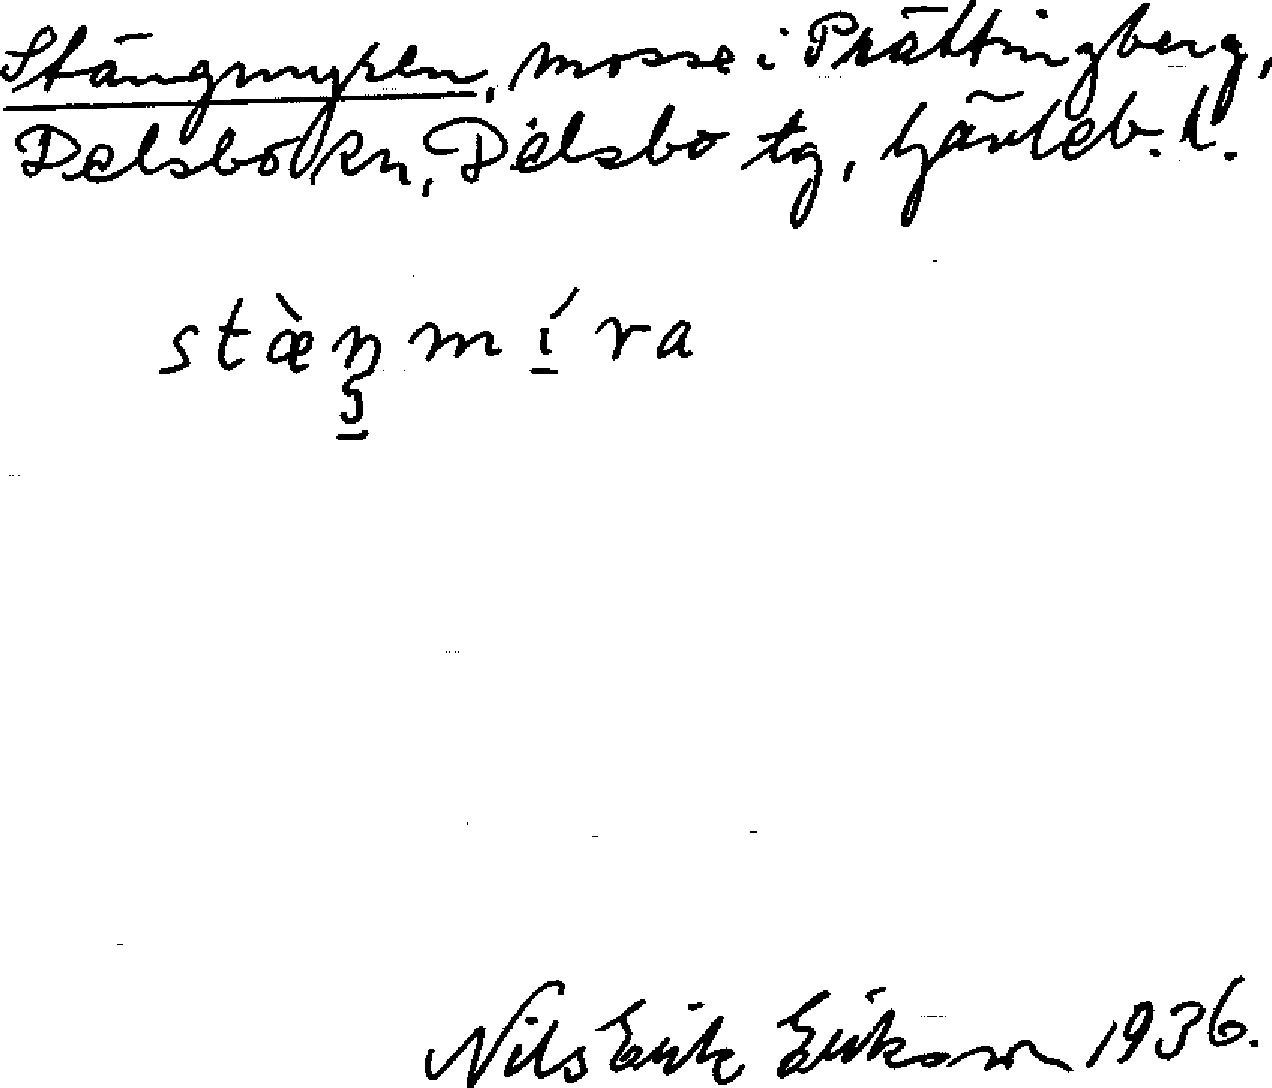 Stängmyren, mosse i Prästtingberg,
Delsbo sn, Delsbo tg, Gävleb. l.
stæ̀ŋmíra
Nils Erik Erikson 1936.